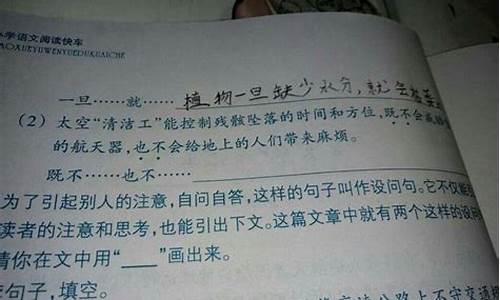 小学语文阅读快车
AOXUEYUWENYUEDUKUAICHE
一旦……就…… 植物一旦缺少水分，就会
（2）太空“清洁工”能控制残骸坠落的时间和方位，既不会
的航天器，也不会给地上的人们带来麻烦。
既不……也不……
为了引起别人的注意，自问自答，这样的句子叫作设问句。它不仅能
读者的注意和思考，也能引出下文。这篇文章中就有两个这样的设问
请你在文中用“——”画出来。
句子，填空。